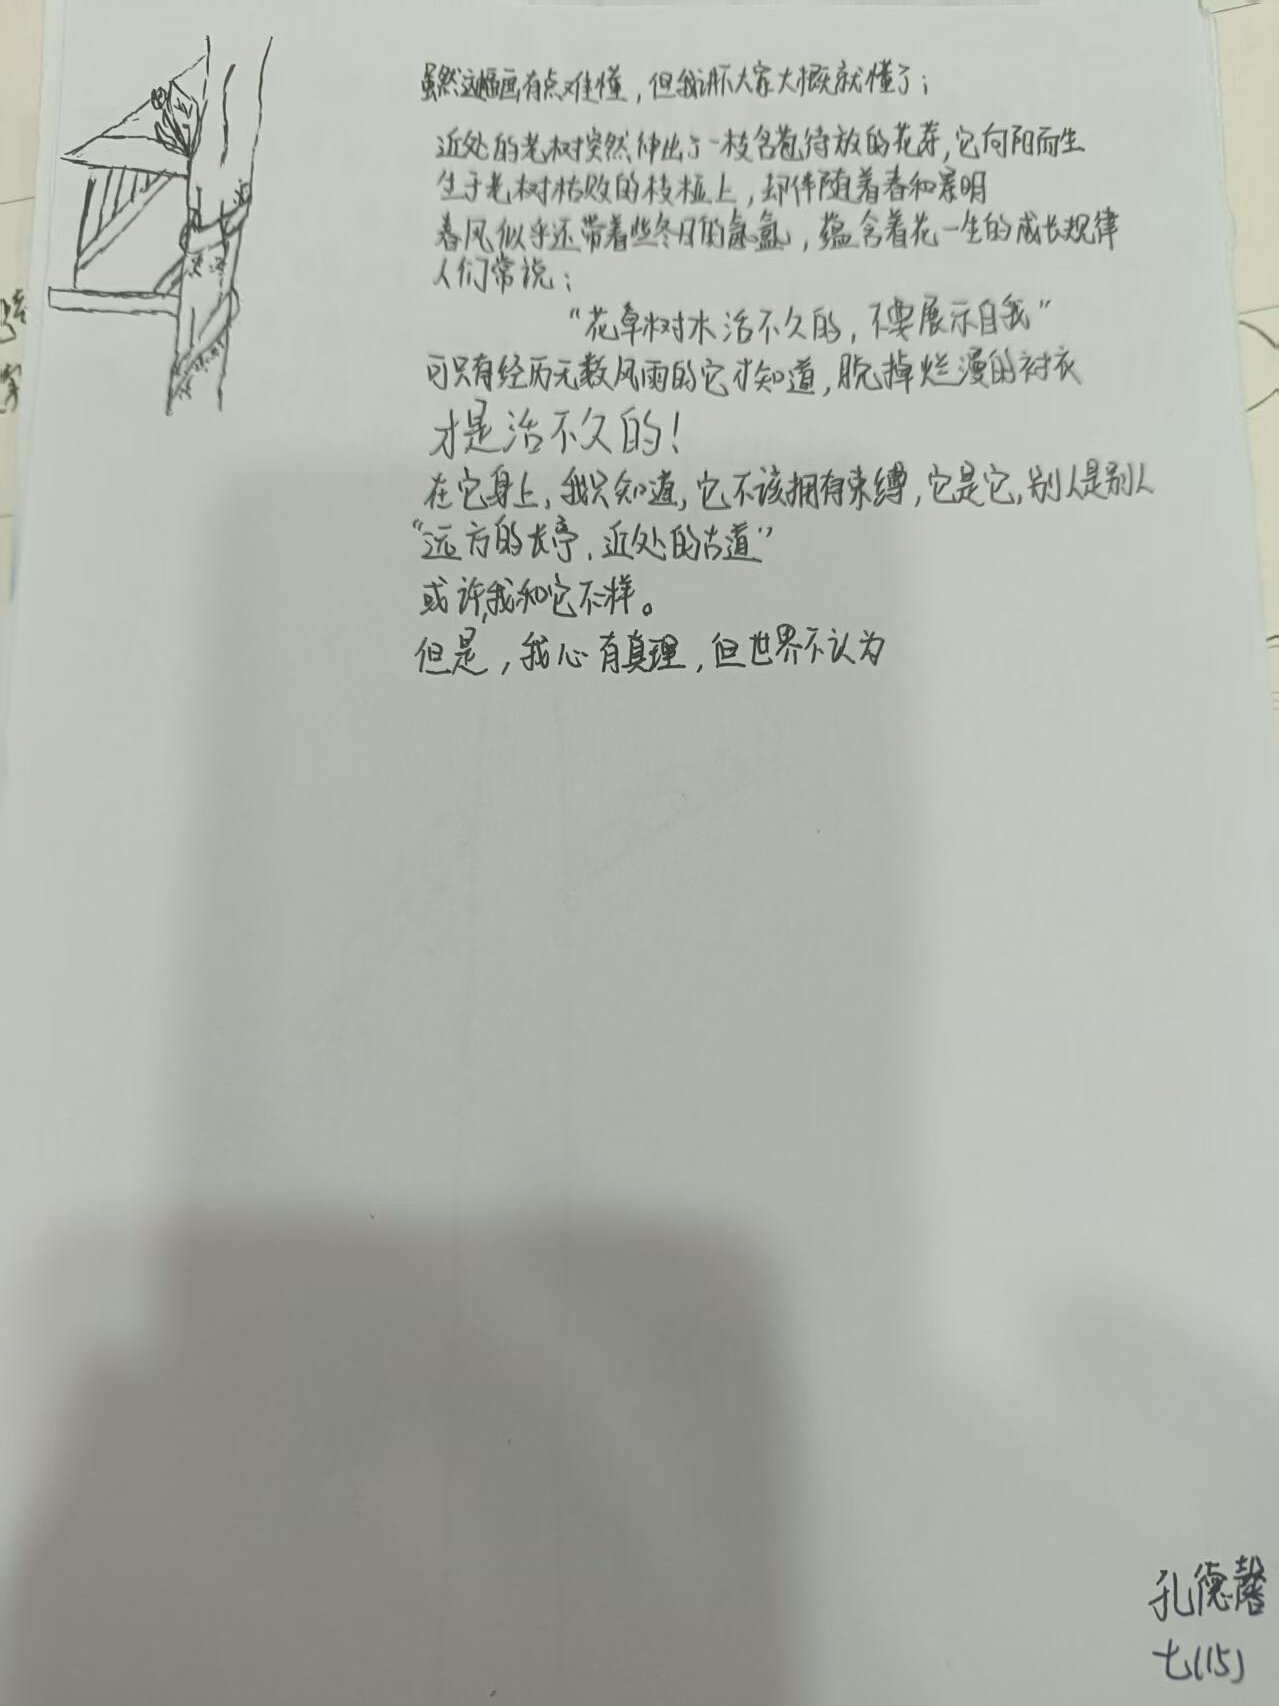 虽然这幅画有点难懂，但我讲下大家大概就懂了；
近处的老树突然伸出了一枝含苞待放的花芽，它向阳而生
生于老树枯败的枝桠上，却伴随着春和景明
春风似乎还带着些冬日的氤氲，蕴含着花一生的成长规律
人们常说：
“花草树木活不久的，不要展示自我”
可只有经历无数风雨的它才知道，脱掉烂漫的衬衣
才是活不久的！
在它身上，我只知道，它不该拥有束缚，它是它，别人是别人
“远方的长亭，近处的古道”
或许，我和它不一样。
但是，我心有真理，但世界不认为
孔德馨
七(15)